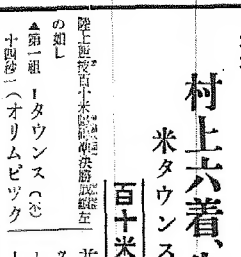 村上六着、
米タウンス
百十米
陸上競技百十米障碍準決勝成績左
の如し
▲第一組 1タウンス(米)
十四秒一(オリムピック